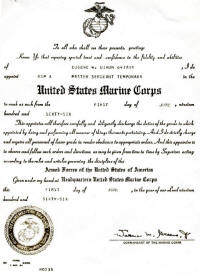 To all who shall see these presents, greeting:
Know Ye that reposing special trust and confidence in the fidelity and abilities
of EUGENE W. I do
appoint HIM A MASTER SERGEANT TEMPORARY in the
United States Marine Corps
to rank as such from the FIRST day of JUNE, nineteen
hundred and SIXTY-SIX
This appointee will therefore carefully and diligently discharge the duties of the grade to which
appointed by doing and performing all manner of things thereunto pertaining. And I do strictly charge
and require all personnel of lesser grade to render obedience to appropriate orders. And this appointee is
to observe and follow such orders and directions as may be given from time to time by Superiors acting
according to the rules and articles governing the discipline of the
Armed Forces of the United States of America
Given under my hand at Headquarters United States Marine Corps
this FIRST day of JUNE, in the year of our Lord nineteen
hundred and SIXTY-SIX
COMMANDANT OF THE MARINE CORPS